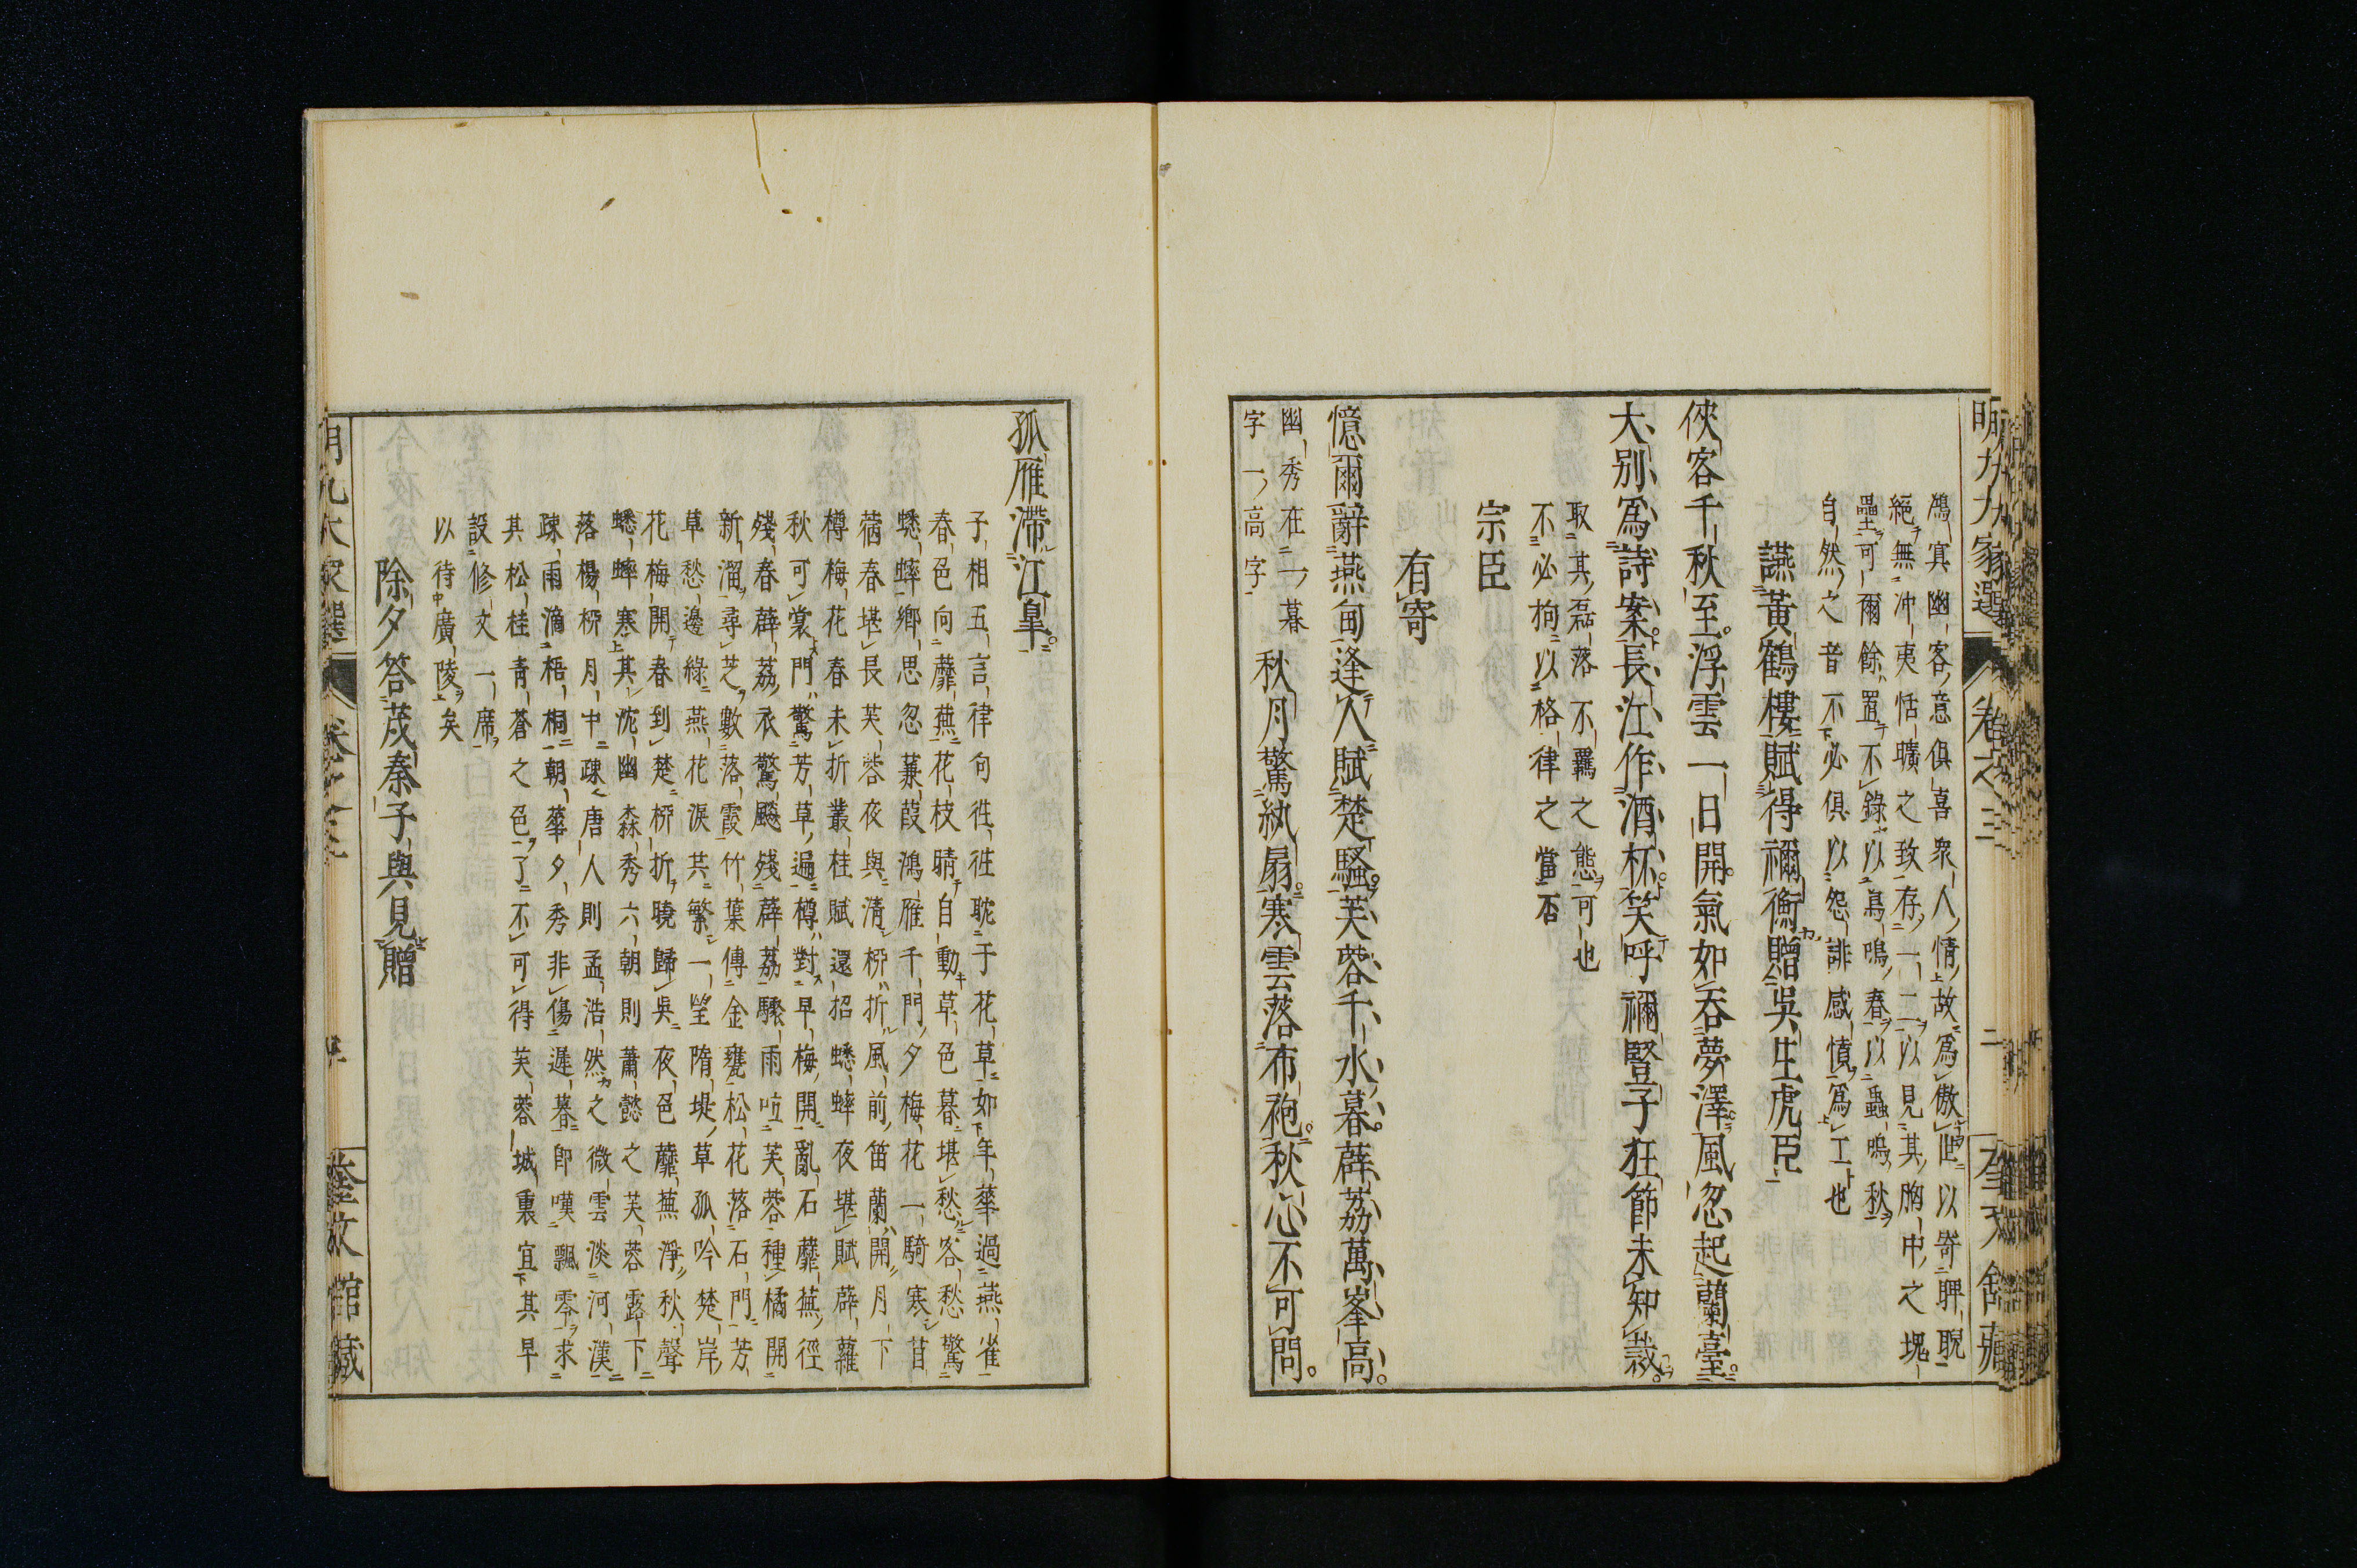 鴻寘幽客意俱喜衆人情故爲傲世以寄睥睨
絕無冲夷恬曠之致存一二以見其胸中之塊
壘可爾餘置不錄以鳥鳴春以蟲鳴秋
自然之音不必俱以怨誹感憤爲工也
讌黃鶴樓賦得禰衡贈吳生虎臣
俠客千秋至浮雲一日開氣如吞夢澤風忽起蘭臺
大別爲詩案長江作酒杯笑呼禰豎子狂節未知裁
取其磊落不羈之態可也
不必拘以格律之當否
宗臣
有寄
憶爾辭燕甸逢人賦楚騷芙蓉千水暮薜荔萬峯高
幽秀在一暮
字一高字
秋月驚紈扇寒雲落布袍秋心不可問
明九大家選 卷之三 二
孤雁滯江皐
子相五言律句徃徃耽于花草如年華過燕雀
春色向蘼蕪花枝晴自動草色暮堪愁客愁驚
蟋蟀鄉思忽蒹葭鴻雁千門夕梅花一騎寒苜
蓿春堪長芙蓉夜與清柳折風前笛蘭開月下
樽梅花春未折叢桂賦還招蟋蟀夜堪賦薜蘿
秋可裳門驚芳草遍樽對早梅開亂石蘼蕪徑
殘春薜荔衣驚颷殘薜荔驟雨吐芙蓉種橘開
新溜尋芝數落霞竹葉傳金甕松花落石門芳
草愁邊綠燕花淚共繁一望隋堤草孤吟楚岸
花梅開春到楚柳折曉歸吳夜色蘼蕪淨秋聲
蟋蟀寒其沈幽森秀六朝則蕭懿之芙蓉露下
落楊柳月中疎唐人則孟浩然之微雲淡河漢
疎雨滴梧桐朝華夕秀非傷遲暮卽嘆飄零求
其松桂青蒼之色了不可得芙蓉城裏宜其早
設修文一席
以待廣陵矣
除夕答茂秦子與見贈